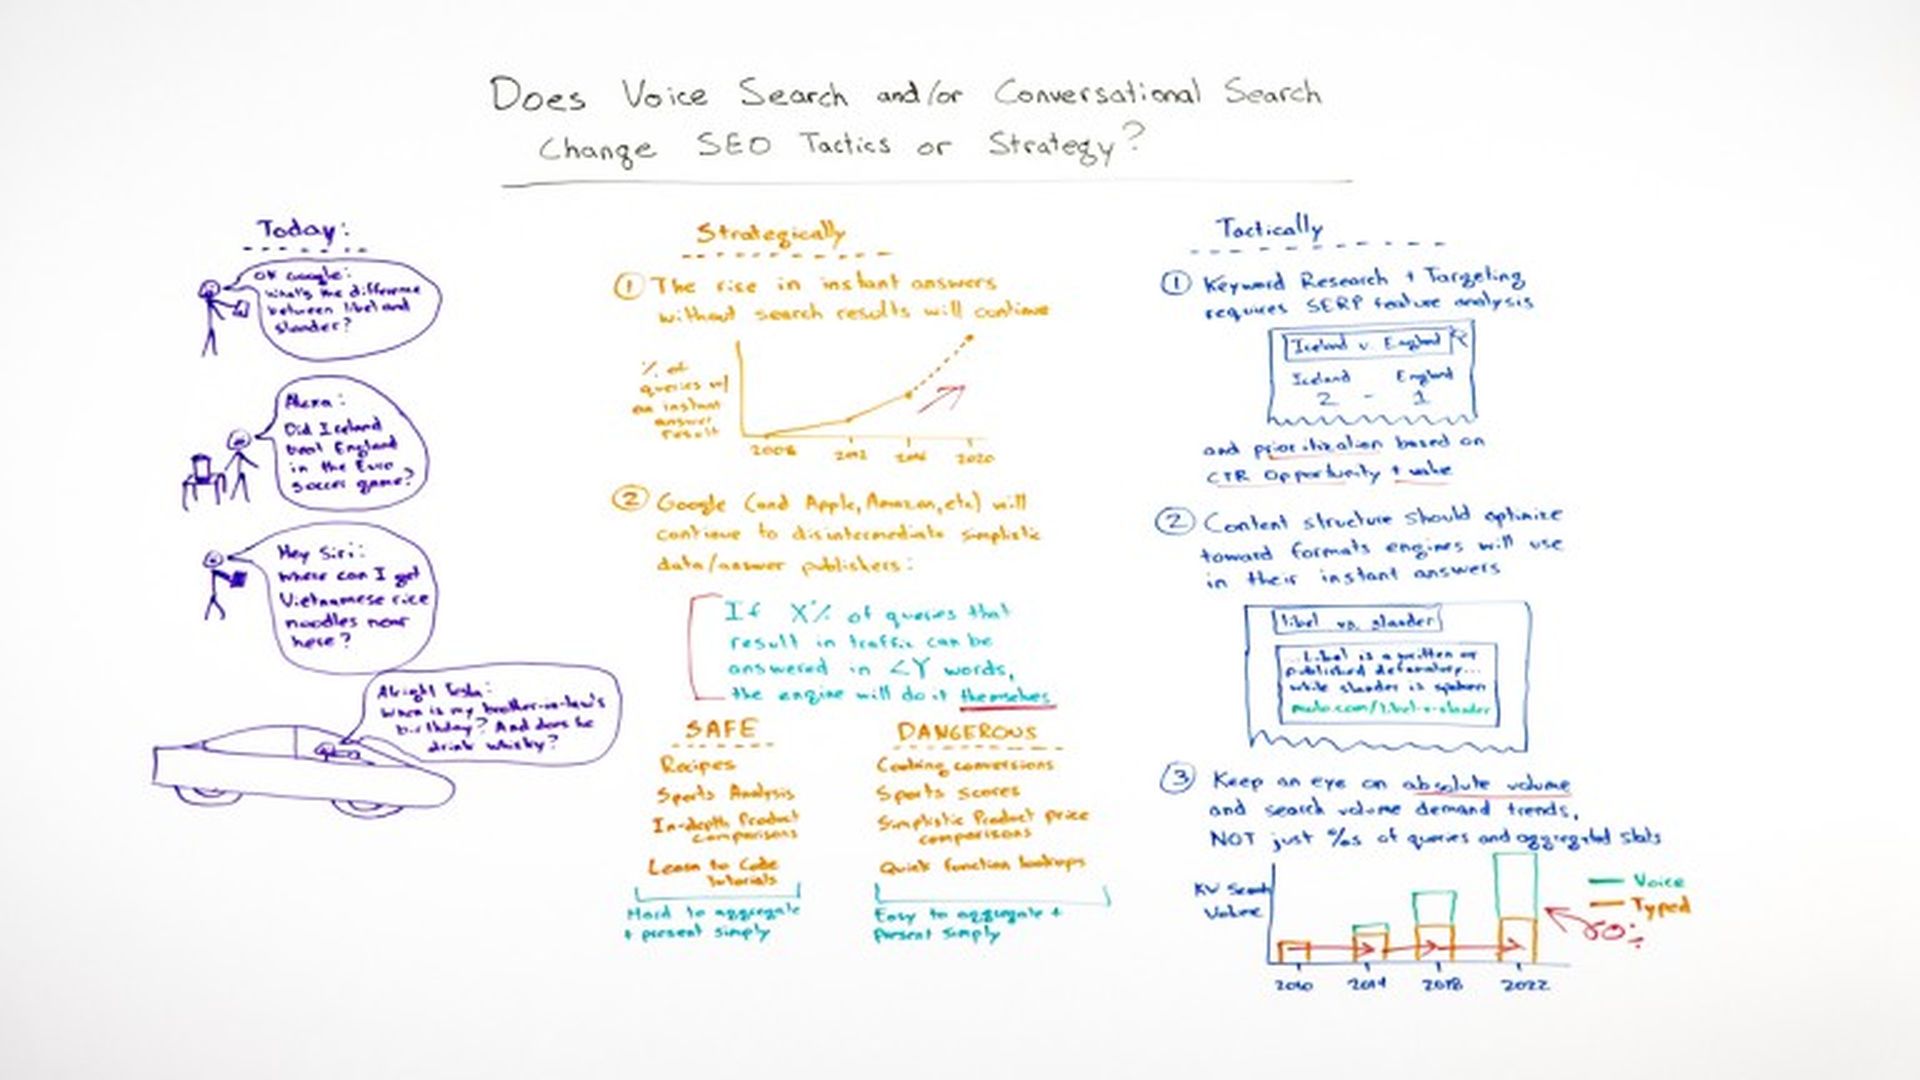 Does Voice Search and/or Conversational Search
Change SEO Tactics or Strategy?
Today:
OK Google:
What's the difference
between libel and
slander?
Alexa:
Did Iceland
beat England
in the Euro
soccer game?
Hey Siri:
where can I get
Vietnamese rice
noodles near
here?
Alright Tesla:
When is my brother-in-law's
birthday? And does he
drink whisky?
Strategically
1 The rise in instant answers
without search results will continue
% of
queries w/
an instant
answer
result
2008 2012 2016 2020
2 Google (and Apple, Amazon, etc) will
continue to disintermediate simplistic
data/answer publishers:
If X% of queries that
result in traffic can be
answered in <Y words,
the engine will do it themselves
SAFE
Recipes
Sports Analysis
In-depth Product
comparisons
Learn to Code
tutorials
Hard to aggregate
+ present simply
DANGEROUS
Cooking conversions
Sports scores
Simplistic Product price
comparisons
Quick function lookups
Easy to aggregate +
present simply
Tactically
1 Keyword Research + Targeting
requires SERP feature analysis
Iceland v. England
Iceland England
2 - 1
and prioritization based on
CTR Opportunity + value
2 Content structure should optimize
toward formats engines will use
in their instant answers
libel vs. slander
...Libel is a written or
published defamatory...
while slander is spoken
3 Keep an eye on absolute volume
and search volume demand trends,
NOT just %s of queries and aggregated stats
KW Search
Volume
Voice
Typed
2010 2014 2018 2022